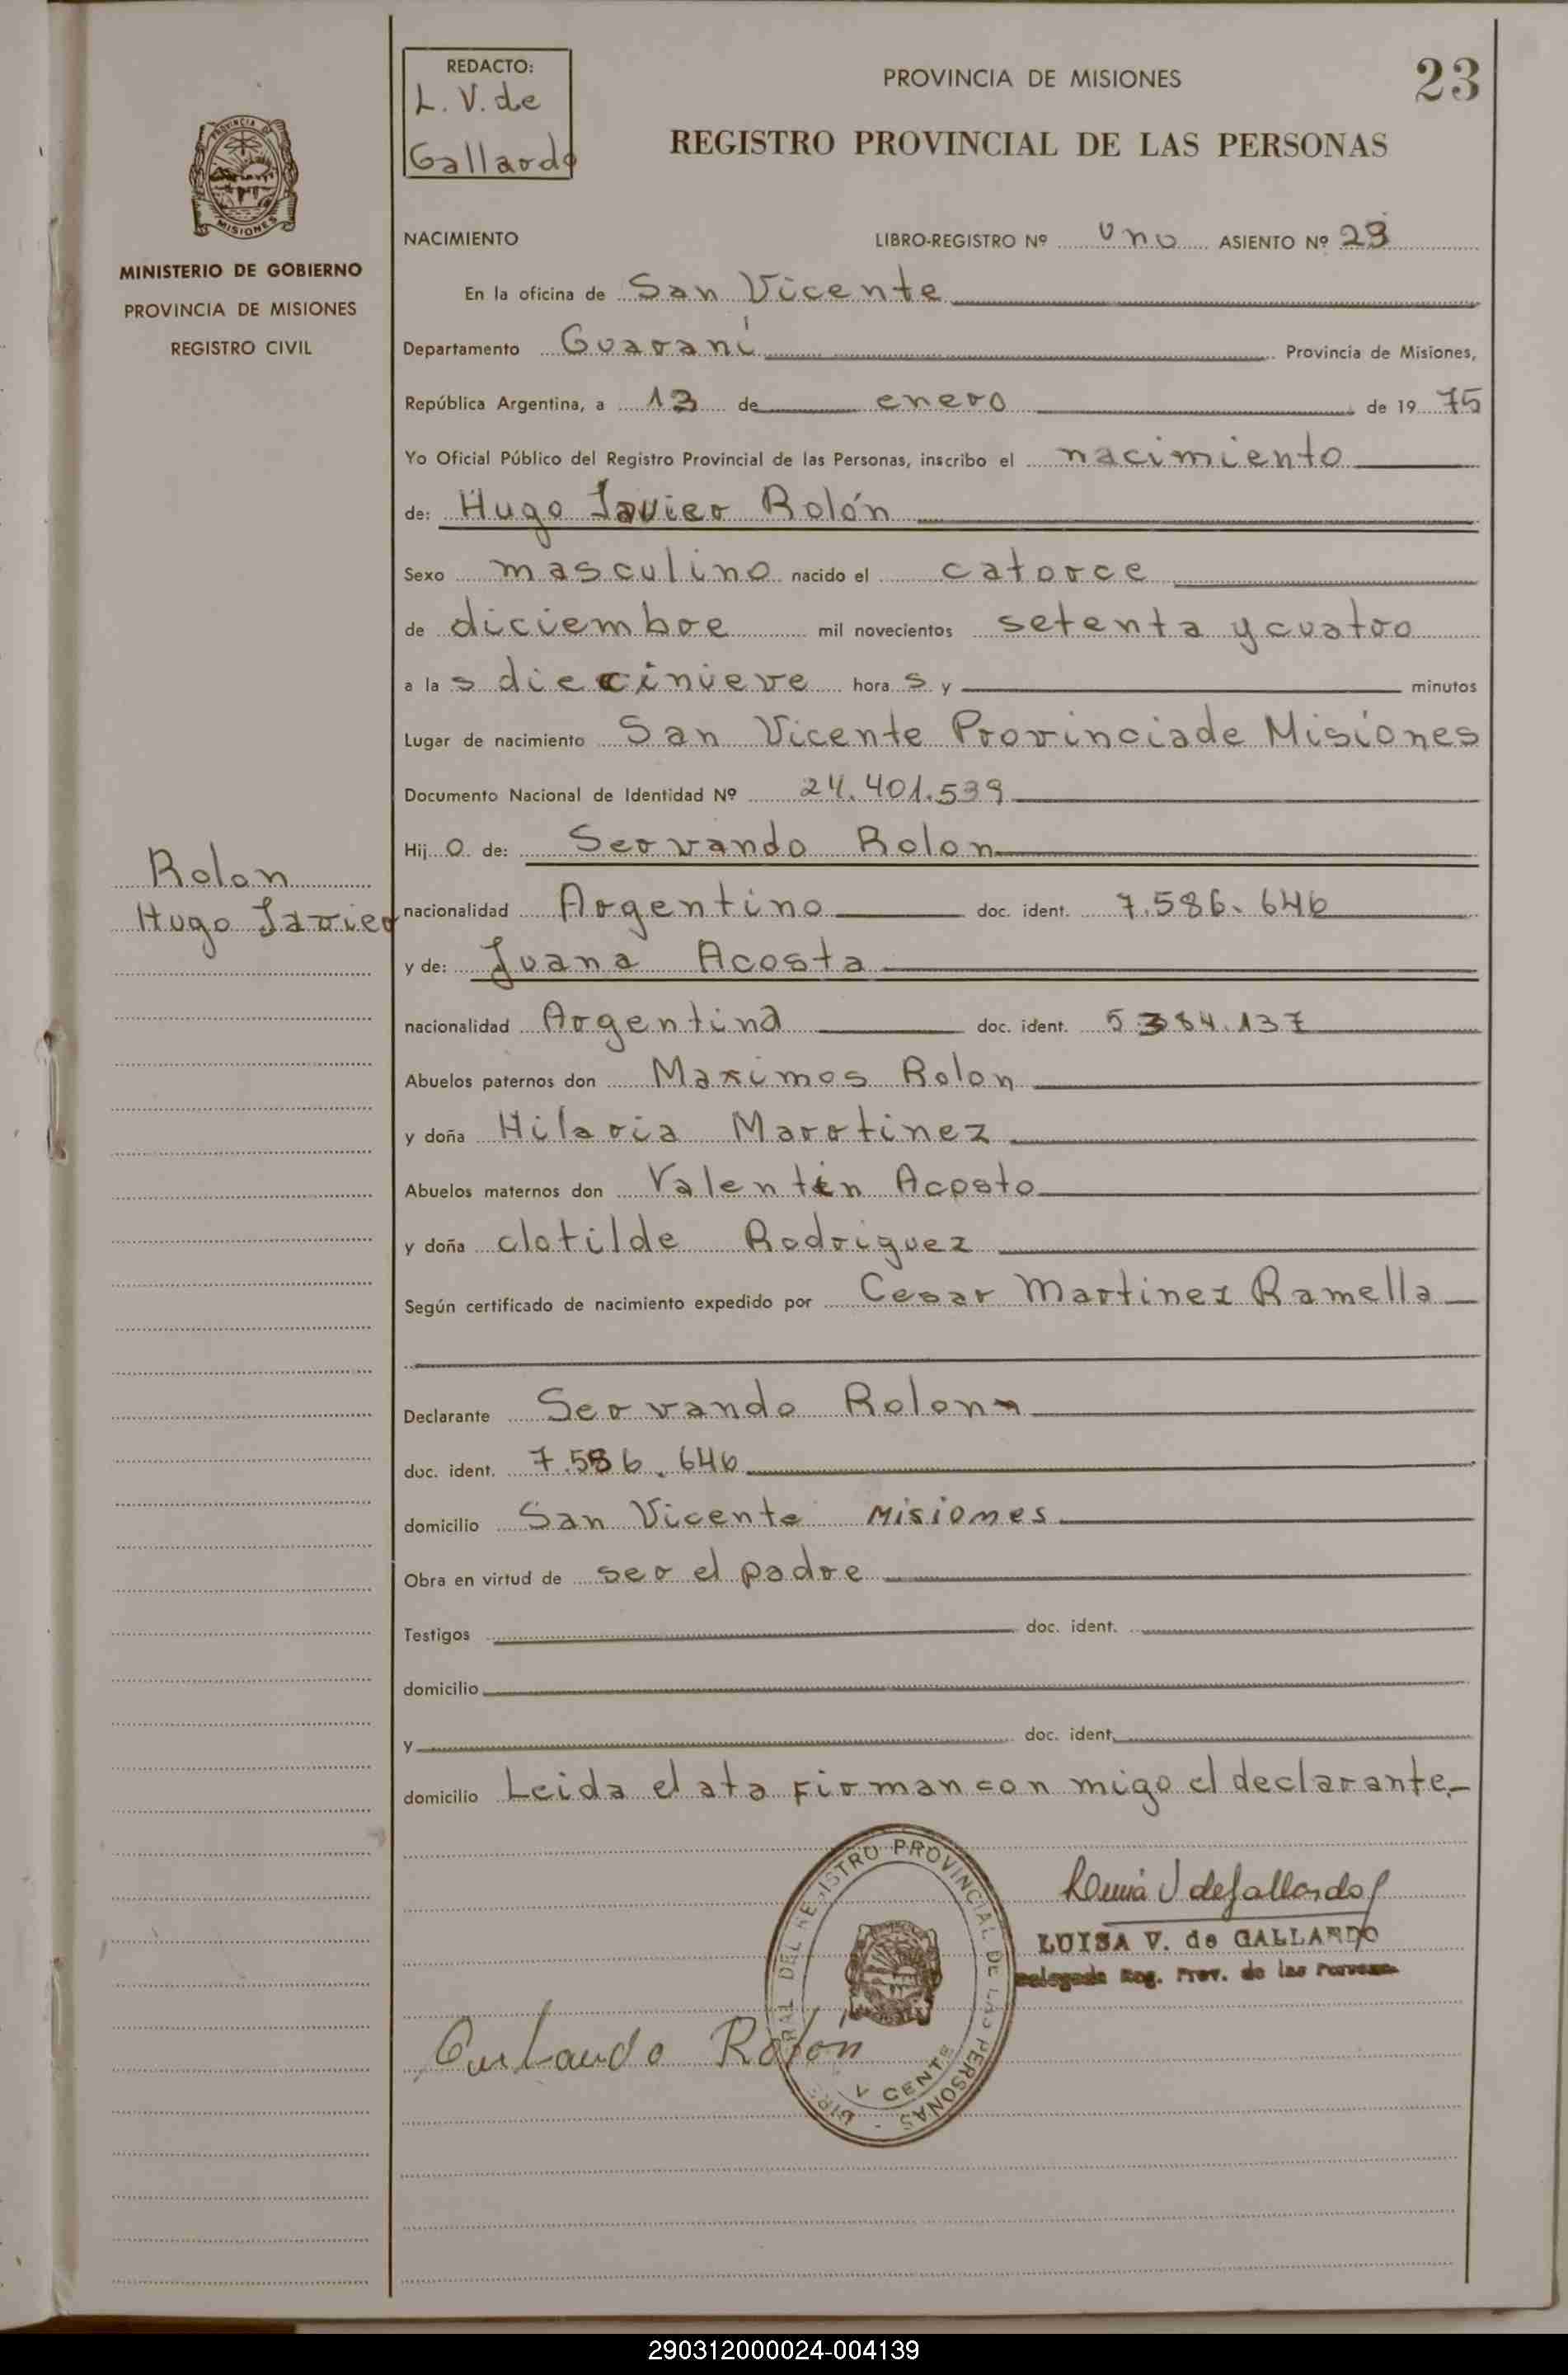 REDACTO:
L. V. de
Gallardo
PROVINCIA DE MISIONES
23
REGISTRO PROVINCIAL DE LAS PERSONAS
PROVINCIA DE
MISIONES
MINISTERIO DE GOBIERNO
PROVINCIA DE MISIONES
REGISTRO CIVIL
NACIMIENTO LIBRO-REGISTRO Nº uno ASIENTO Nº 23
En la oficina de San Vicente
Departamento Guaraní Provincia de Misiones,
República Argentina, a 13 de enero de 19 75
Yo Oficial Público del Registro Provincial de las Personas, inscribo el nacimiento
de: Hugo Javier Rolón
Sexo masculino nacido el catorce
de diciembre mil novecientos setenta y cuatro
a la s diecinueve hora s y minutos
Lugar de nacimiento San Vicente Provincia de Misiones
Documento Nacional de Identidad Nº 24.401.539
Hij o de: Servando Rolon
Rolon
Hugo Javier
nacionalidad Argentino doc. ident. 7.586.646
y de: Juana Acosta
nacionalidad Argentina doc. ident. 5.384.137
Abuelos paternos don Maximos Rolon
y doña Hilaria Marotinez
Abuelos maternos don Valentin Acosto
y doña Clotilde Rodriguez
Según certificado de nacimiento expedido por Cesar Martinez Ramella
Declarante Servando Rolon
doc. ident. 7.586.646
domicilio San Vicente Misiones
Obra en virtud de ser el padre
Testigos doc. ident.
domicilio
y doc. ident.
domicilio Leida el ata firman con migo el declarante.
REGISTRO PROVINCIAL DE LAS PERSONAS
LUISA V. de GALLARDO
Delegada Reg. Prov. de las Personas
Rolón
290312000024-004139